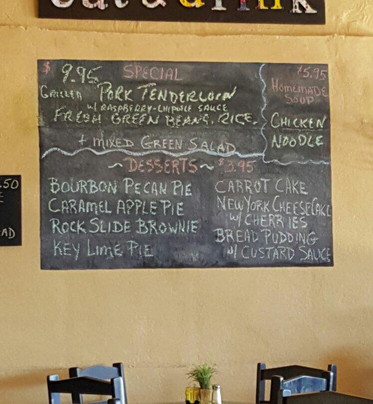 eat & drink
$ 9.95 SPECIAL
GRILLED PORK TENDERLOIN
W/ RASPBERRY-CHIPOTLE SAUCE
FRESH GREEN BEANS, RICE,
+ MIXED GREEN SALAD
$5.95
HOMEMADE
SOUP
CHICKEN
NOODLE
~DESSERTS~ $3.95
BOURBON PECAN PIE
CARAMEL APPLE PIE
ROCK SLIDE BROWNIE
KEY LIME PIE
CARROT CAKE
NEW YORK CHEESECAKE
W/ CHERRIES
BREAD PUDDING
W/ CUSTARD SAUCE
.50